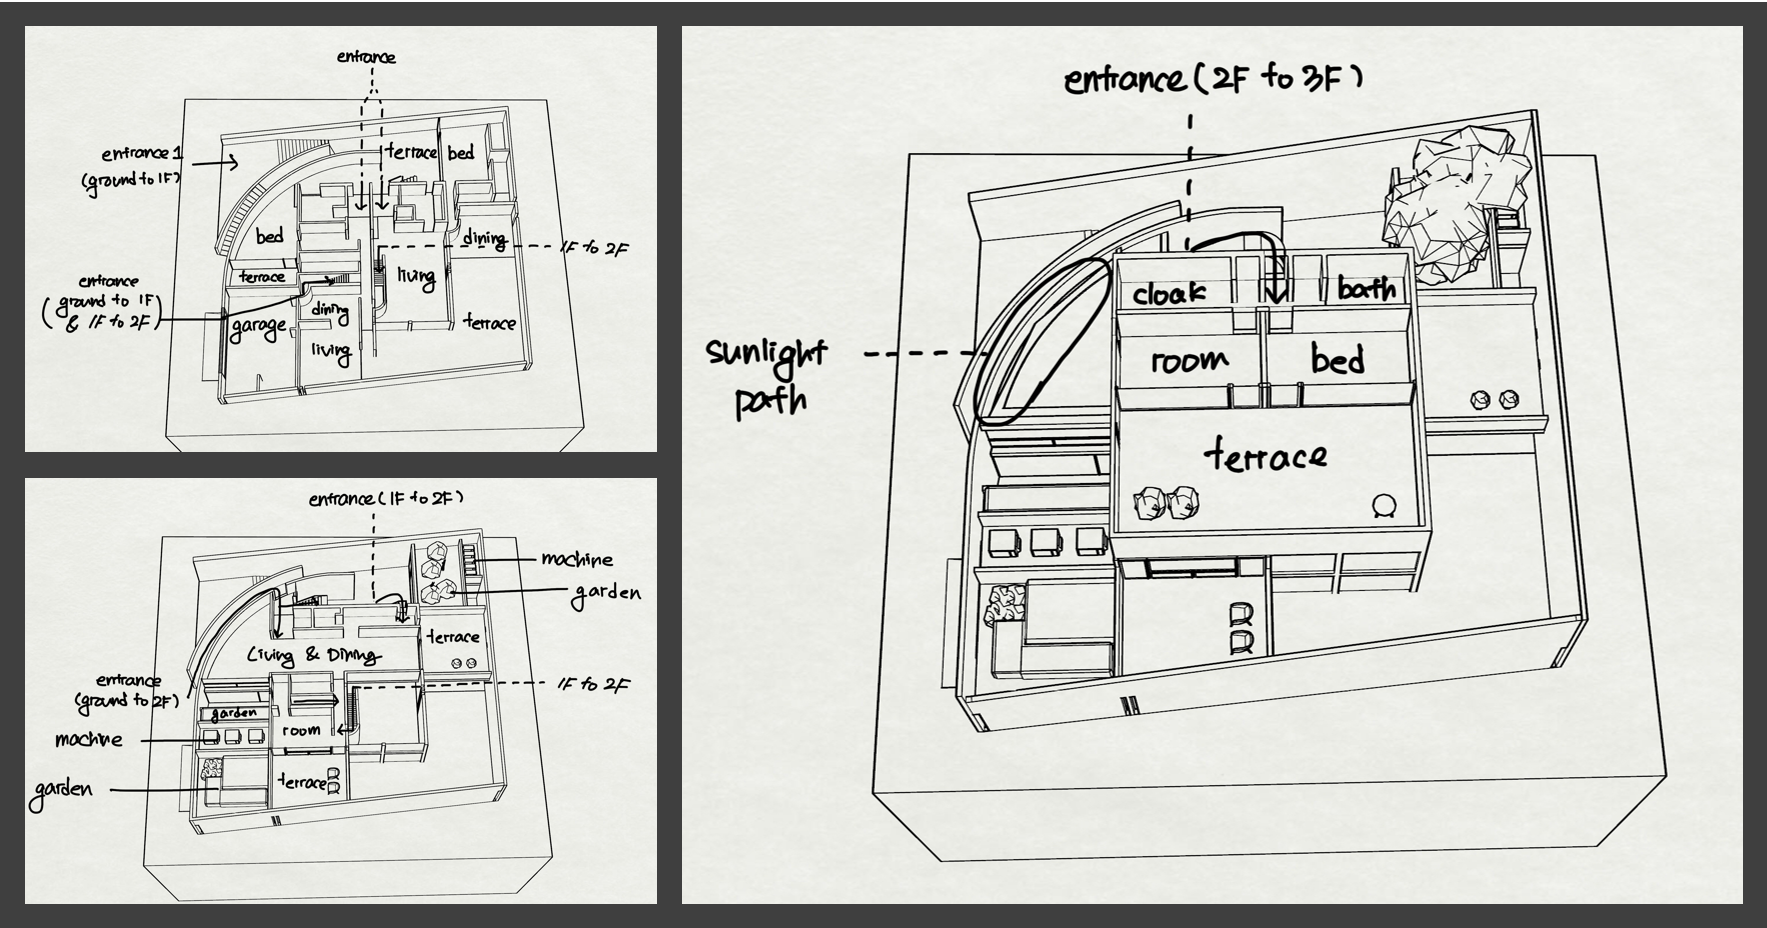 entrance
entrance 1
(ground to 1F)
terrace
bed
bed
dining
1F to 2F
terrace
living
entrance
(ground to 1F)
& 1F to 2F)
garage
dining
living
terrace
entrance (1F to 2F)
machine
garden
terrace
Living & Dining
entrance
(ground to 2F)
1F to 2F
garden
room
machine
terrace
garden
entrance (2F to 3F)
cloak
bath
sunlight
path
room
bed
terrace